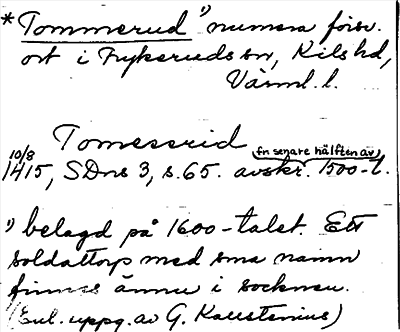 *Tommerud ¹) numera försv.
ort i Frykeruds sn, Kils hd,
Värml. l.
Tomessrid
(fr senare hälften av)
10/8
1415, SDns 3, s. 65. avskr. 1500-t.
¹) belagd på 1600-talet. Ett
soldattorp med sma namn
finnes ännu i socknen.
(Enl. uppg. av G. Kallstenius)